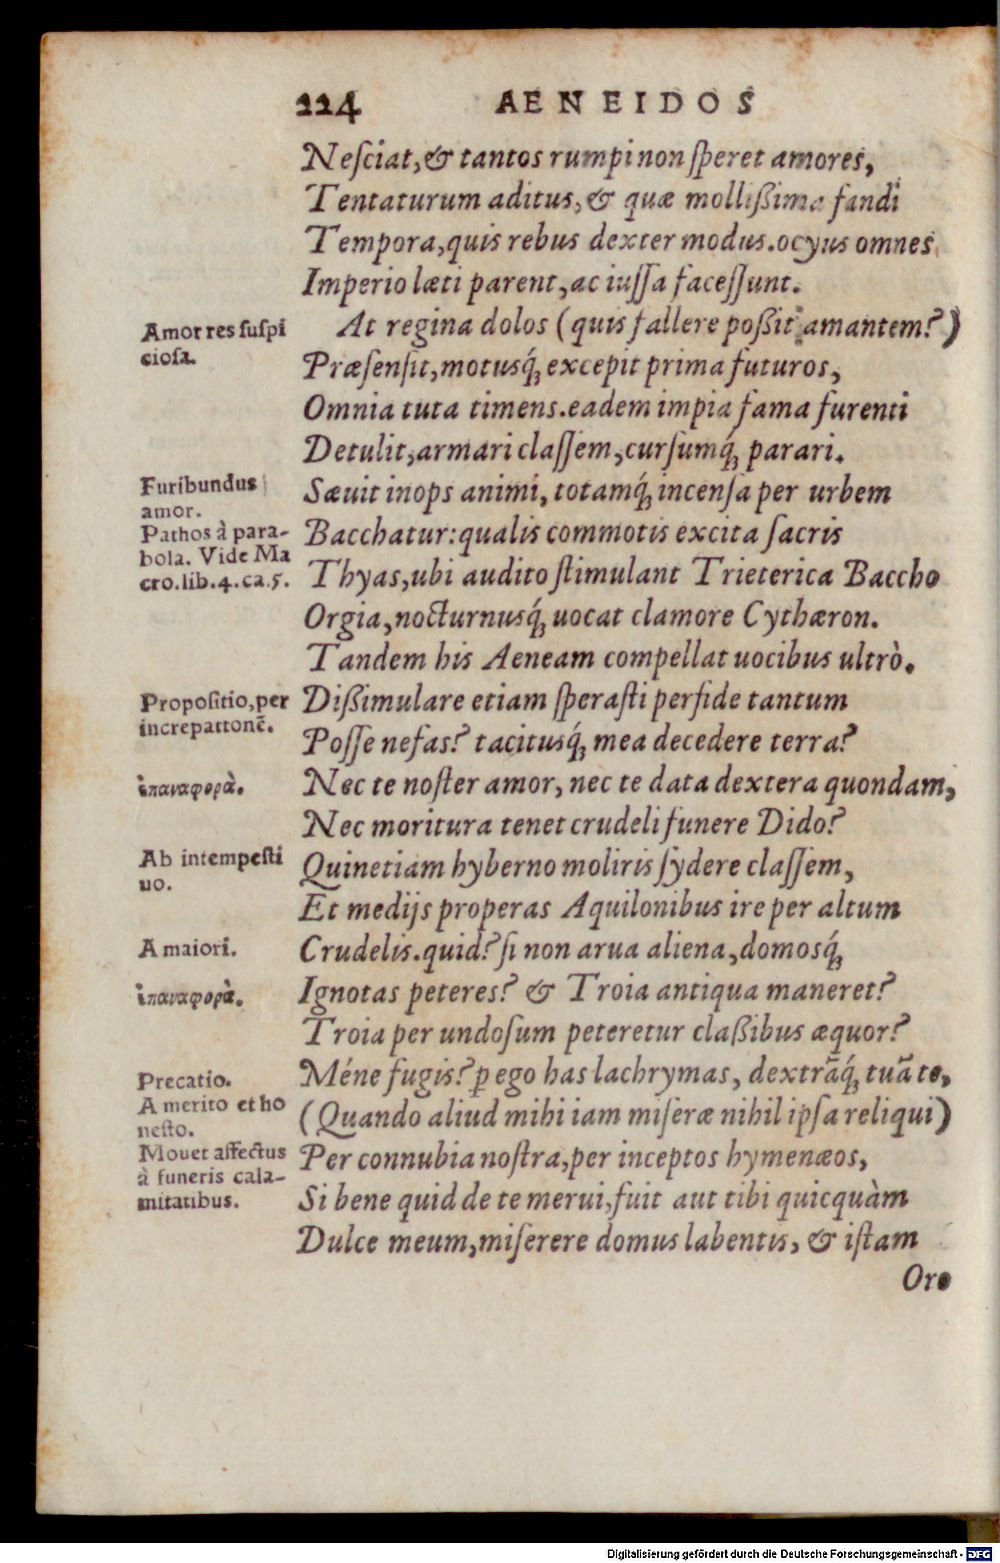 224 AENEIDOS
Neſciat, & tantos rumpi non ſperet amores,
Tentaturum aditus, & quæ mollißima fandi
Tempora, quis rebus dexter modus. ocyus omnes
Imperio læti parent, ac iuſſa faceſſunt.
Amor res ſuſpi
cioſa.
At regina dolos (quis fallere poßit amantem?)
Præſenſit, motusq́ꝫ excepit prima futuros,
Omnia tuta timens. eadem impia fama furenti
Detulit, armari claſſem, curſumq́ꝫ parari.
Furibundus
amor.
Pathos à para-
bola. Vide Ma
cro. lib. 4. ca. 5.
Sæuit inops animi, totamq́ꝫ incenſa per urbem
Bacchatur: qualis commotis excita ſacris
Thyas, ubi audito ſtimulant Trieterica Baccho
Orgia, nocturnusq́ꝫ uocat clamore Cythæron.
Tandem his Aeneam compellat uocibus ultrò.
Propoſitio, per
increpationẽ.
Dißimulare etiam ſperaſti perfide tantum
Poſſe nefas? tacitusq́ꝫ mea decedere terra?
ἐπαναφορὰ.
Nec te noſter amor, nec te data dextera quondam,
Nec moritura tenet crudeli funere Dido?
Ab intempeſti
uo.
Quinetiam hyberno moliris ſydere claſſem,
Et medijs properas Aquilonibus ire per altum
A maiori.
Crudelis. quid? ſi non arua aliena, domosq́ꝫ
ἐπαναφορὰ.
Ignotas peteres? & Troia antiqua maneret?
Troia per undoſum peteretur claßibus æquor?
Precatio.
A merito et ho
neſto.
Mouet affectus
à funeris cala-
mitatibus.
Méne fugis? ꝑ ego has lachrymas, dextrãq́ꝫ tuã te,
(Quando aliud mihi iam miſeræ nihil ipſa reliqui)
Per connubia noſtra, per inceptos hymenæos,
Si bene quid de te merui, fuit aut tibi quicquàm
Dulce meum, miſerere domus labentis, & iſtam
Oro
Digitalisierung gefördert durch die Deutsche Forschungsgemeinschaft - DFG